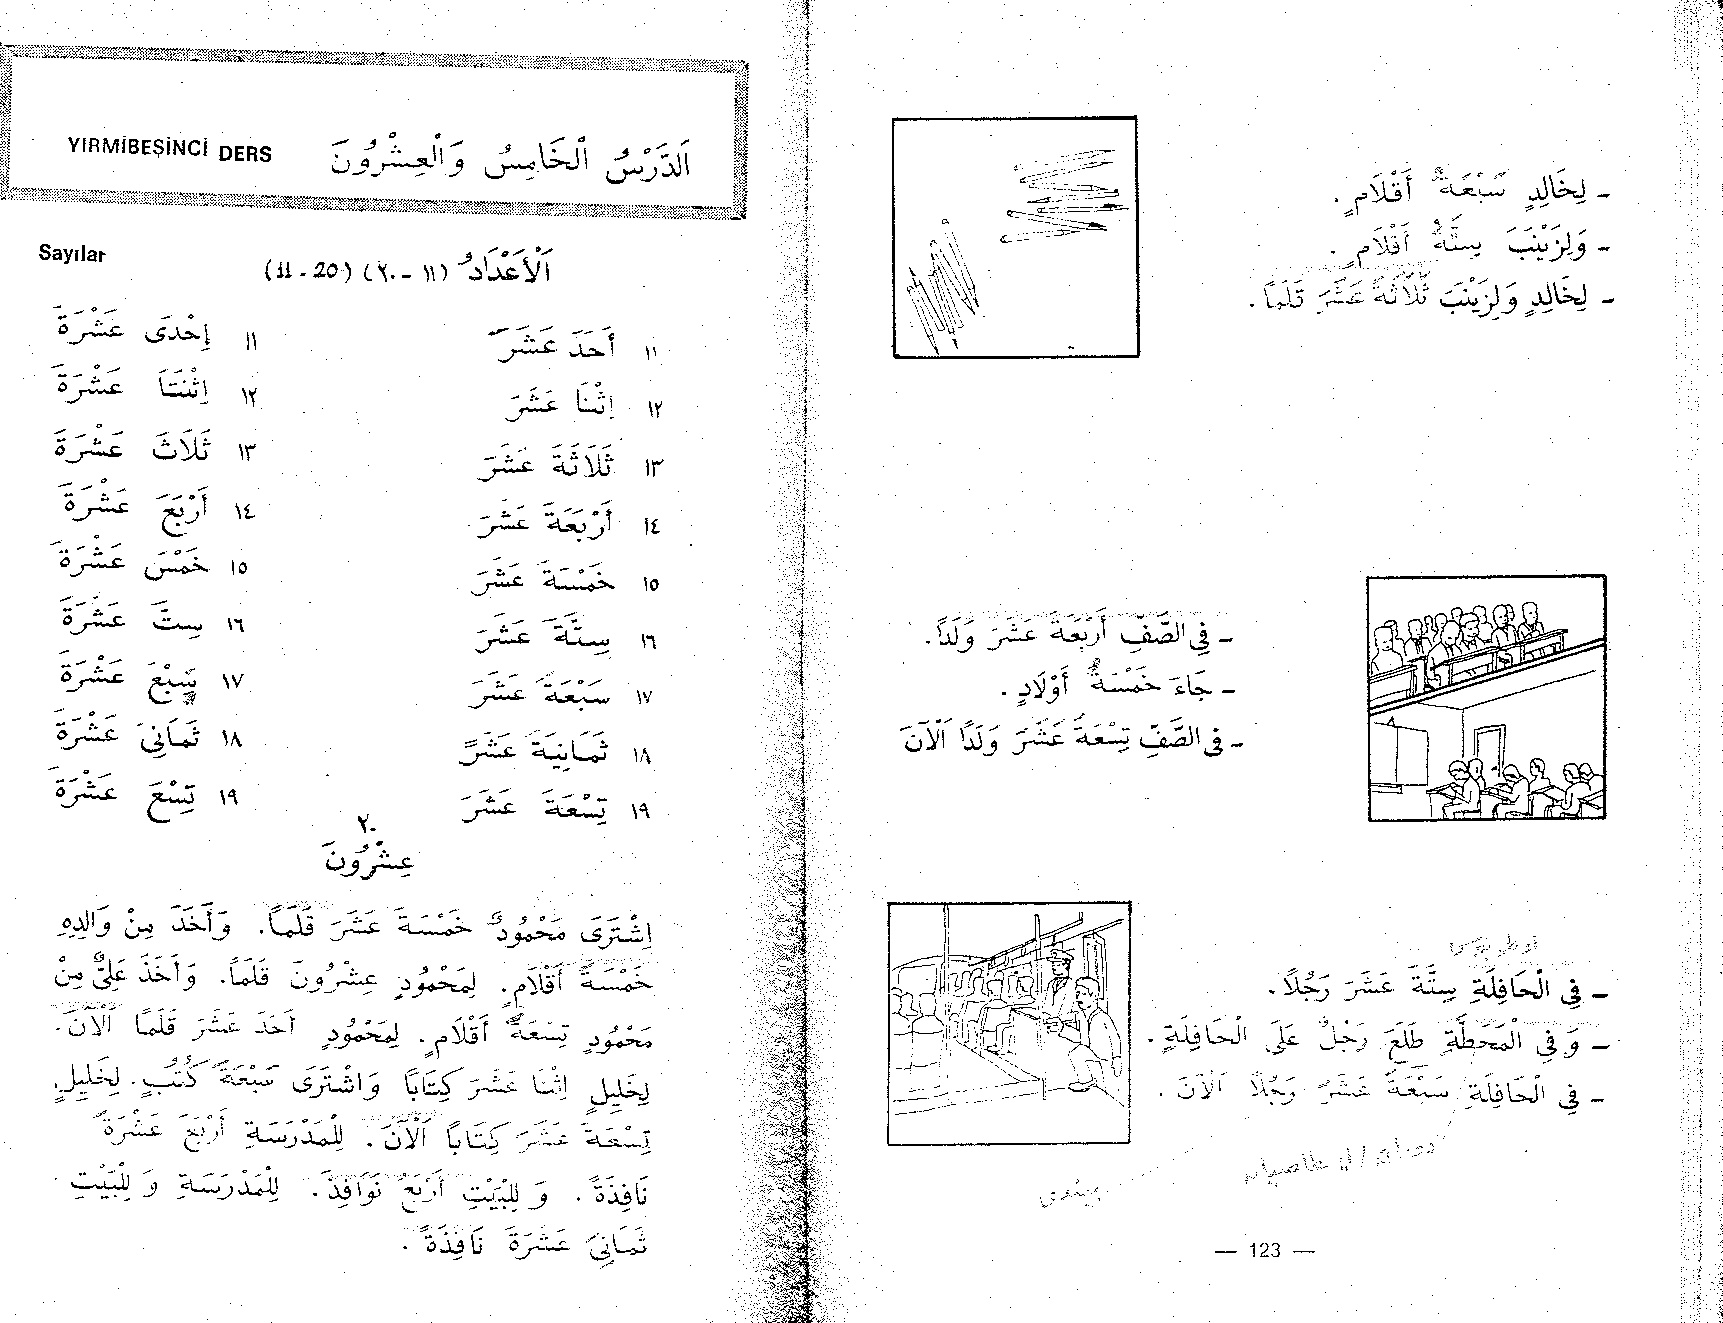 YIRMİBEŞİNCİ DERS اَلدَّرْسُ الْخَامِسُ وَالْعِشْرُونَ
Sayılar اَلْأَعْدَادُ (١١ - ٢٠) (11 - 20)
١١ أَحَدَ عَشَرَ ١١ إِحْدَى عَشْرَةَ
١٢ اِثْنَا عَشَرَ ١٢ اِثْنَتَا عَشْرَةَ
١٣ ثَلَاثَةَ عَشَرَ ١٣ ثَلَاثَ عَشْرَةَ
١٤ أَرْبَعَةَ عَشَرَ ١٤ أَرْبَعَ عَشْرَةَ
١٥ خَمْسَةَ عَشَرَ ١٥ خَمْسَ عَشْرَةَ
١٦ سِتَّةَ عَشَرَ ١٦ سِتَّ عَشْرَةَ
١٧ سَبْعَةَ عَشَرَ ١٧ سَبْعَ عَشْرَةَ
١٨ ثَمَانِيَةَ عَشَرَ ١٨ ثَمَانِيَ عَشْرَةَ
١٩ تِسْعَةَ عَشَرَ ١٩ تِسْعَ عَشْرَةَ
٢٠
عِشْرُونَ
اِشْتَرَى مَحْمُودٌ خَمْسَةَ عَشَرَ قَلَمًا. وَأَخَذَ مِنْ وَالِدِهِ
خَمْسَةَ أَقْلَامٍ. لِمَحْمُودٍ عِشْرُونَ قَلَمًا. وَأَخَذَ عَلِيٌّ مِنْ
مَحْمُودٍ تِسْعَةَ أَقْلَامٍ. لِمَحْمُودٍ أَحَدَ عَشَرَ قَلَمًا اَلْآنَ.
لِخَلِيلٍ اِثْنَا عَشَرَ كِتَابًا وَاشْتَرَى سَبْعَةَ كُتُبٍ. لِخَلِيلٍ
تِسْعَةَ عَشَرَ كِتَابًا اَلْآنَ. لِلْمَدْرَسَةِ أَرْبَعَ عَشْرَةَ
نَافِذَةً. وَ لِلْبَيْتِ أَرْبَعُ نَوَافِذَ. لِلْمَدْرَسَةِ وَ لِلْبَيْتِ
ثَمَانِيَ عَشْرَةَ نَافِذَةً.
- لِخَالِدٍ سَبْعَةُ أَقْلَامٍ.
- وَلِزَيْنَبَ سِتَّةُ أَقْلَامٍ.
- لِخَالِدٍ وَلِزَيْنَبَ ثَلَاثَةَ عَشَرَ قَلَمًا.
- فِي الصَّفِّ أَرْبَعَةَ عَشَرَ وَلَدًا.
- جَاءَ خَمْسَةُ أَوْلَادٍ.
- فِي الصَّفِّ تِسْعَةَ عَشَرَ وَلَدًا اَلْآنَ
- فِي الْحَافِلَةِ سِتَّةَ عَشَرَ رَجُلًا.
- وَ فِي الْمَحَطَّةِ طَلَعَ رَجُلٌ عَلَى الْحَافِلَةِ.
- فِي الْحَافِلَةِ سَبْعَةَ عَشَرَ رَجُلًا اَلْآنَ.
— 123 —